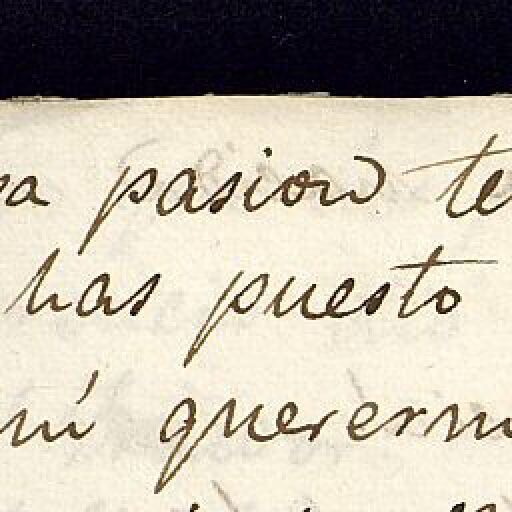 pasion te
has puesto
mí quererm